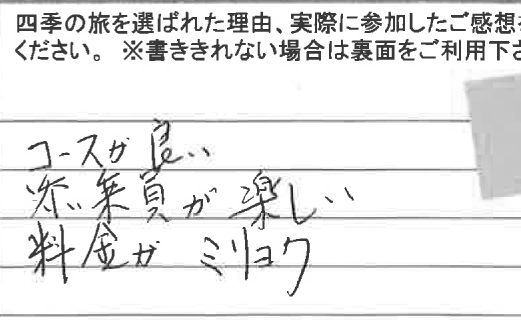 四季の旅を選ばれた理由、実際に参加したご感想
ください。 ※書ききれない場合は裏面をご利用下さ
コースが良い
添乗員が楽しい
料金がミリョク